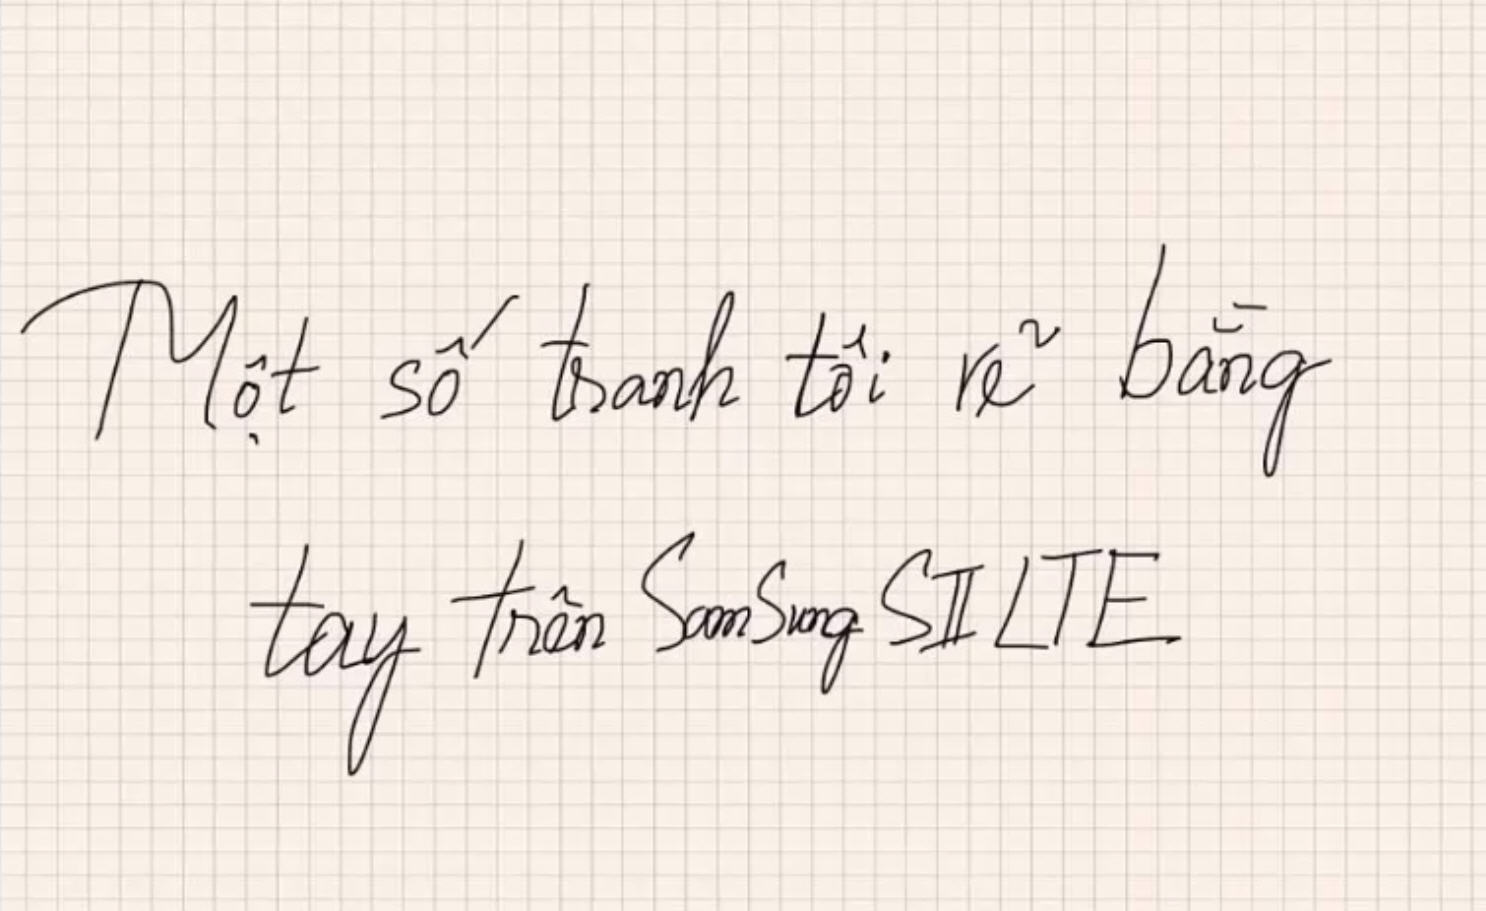 Một số tranh tôi vẽ bằng
tay trên SamSung SII LTE